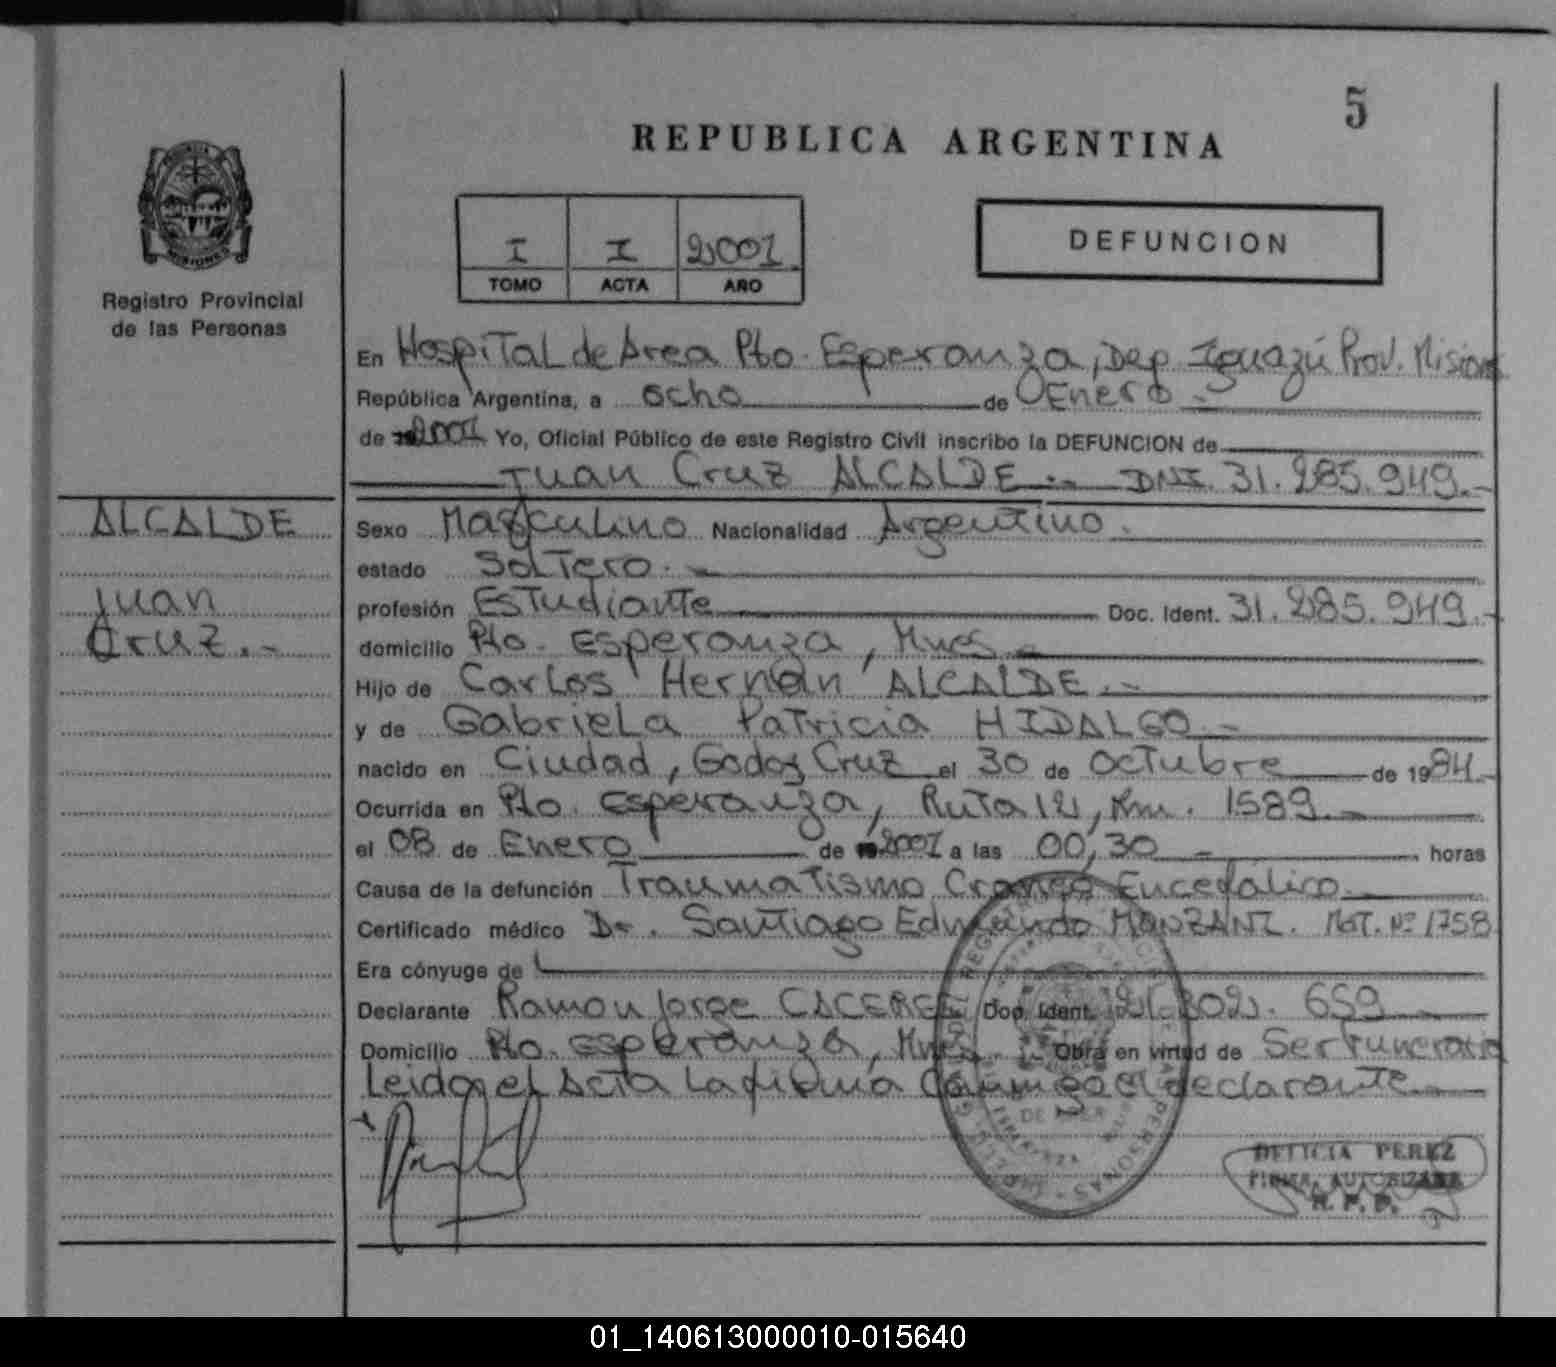 5
REPUBLICA ARGENTINA
PROVINCIA DE
MISIONES
Registro Provincial
de las Personas
I I 2001
TOMO ACTA AÑO
DEFUNCION
En Hospital de Area Pto. Esperanza, Dep. Iguazú Prov. Misiones
República Argentina, a ocho de Enero.-
de 2001 Yo, Oficial Público de este Registro Civil inscribo la DEFUNCION de
Juan Cruz ALCALDE.- DNI. 31.285.949.-
ALCALDE
Juan
Cruz.-
Sexo Masculino Nacionalidad Argentino.
estado Soltero.-
profesión Estudiante Doc. Ident. 31.285.949.-
domicilio Pto. Esperanza, Mnes.-
Hijo de Carlos Hernán ALCALDE.-
y de Gabriela Patricia HIDALGO.-
nacido en Ciudad, Godoy Cruz el 30 de Octubre de 1984.-
Ocurrida en Pto. Esperanza, Ruta 12, Km. 1589.-
el 08 de Enero de 2001 a las 00,30 - horas
Causa de la defunción Traumatismo Craneo Encefalico.-
Certificado médico Dr. Santiago Edmundo MANZANI. Mat. Nº 1758
Era cónyuge de
Declarante Ramon Jorge CACERES Doc. Ident. 21.302.659.-
Domicilio Pto. Esperanza, Mnes. Obra en virtud de Ser Funeraria
Leida el Acta La firma Conmigo el declarante.-
DELICIA PEREZ
FIRMA AUTORIZADA
R. P. P.
01_140613000010-015640